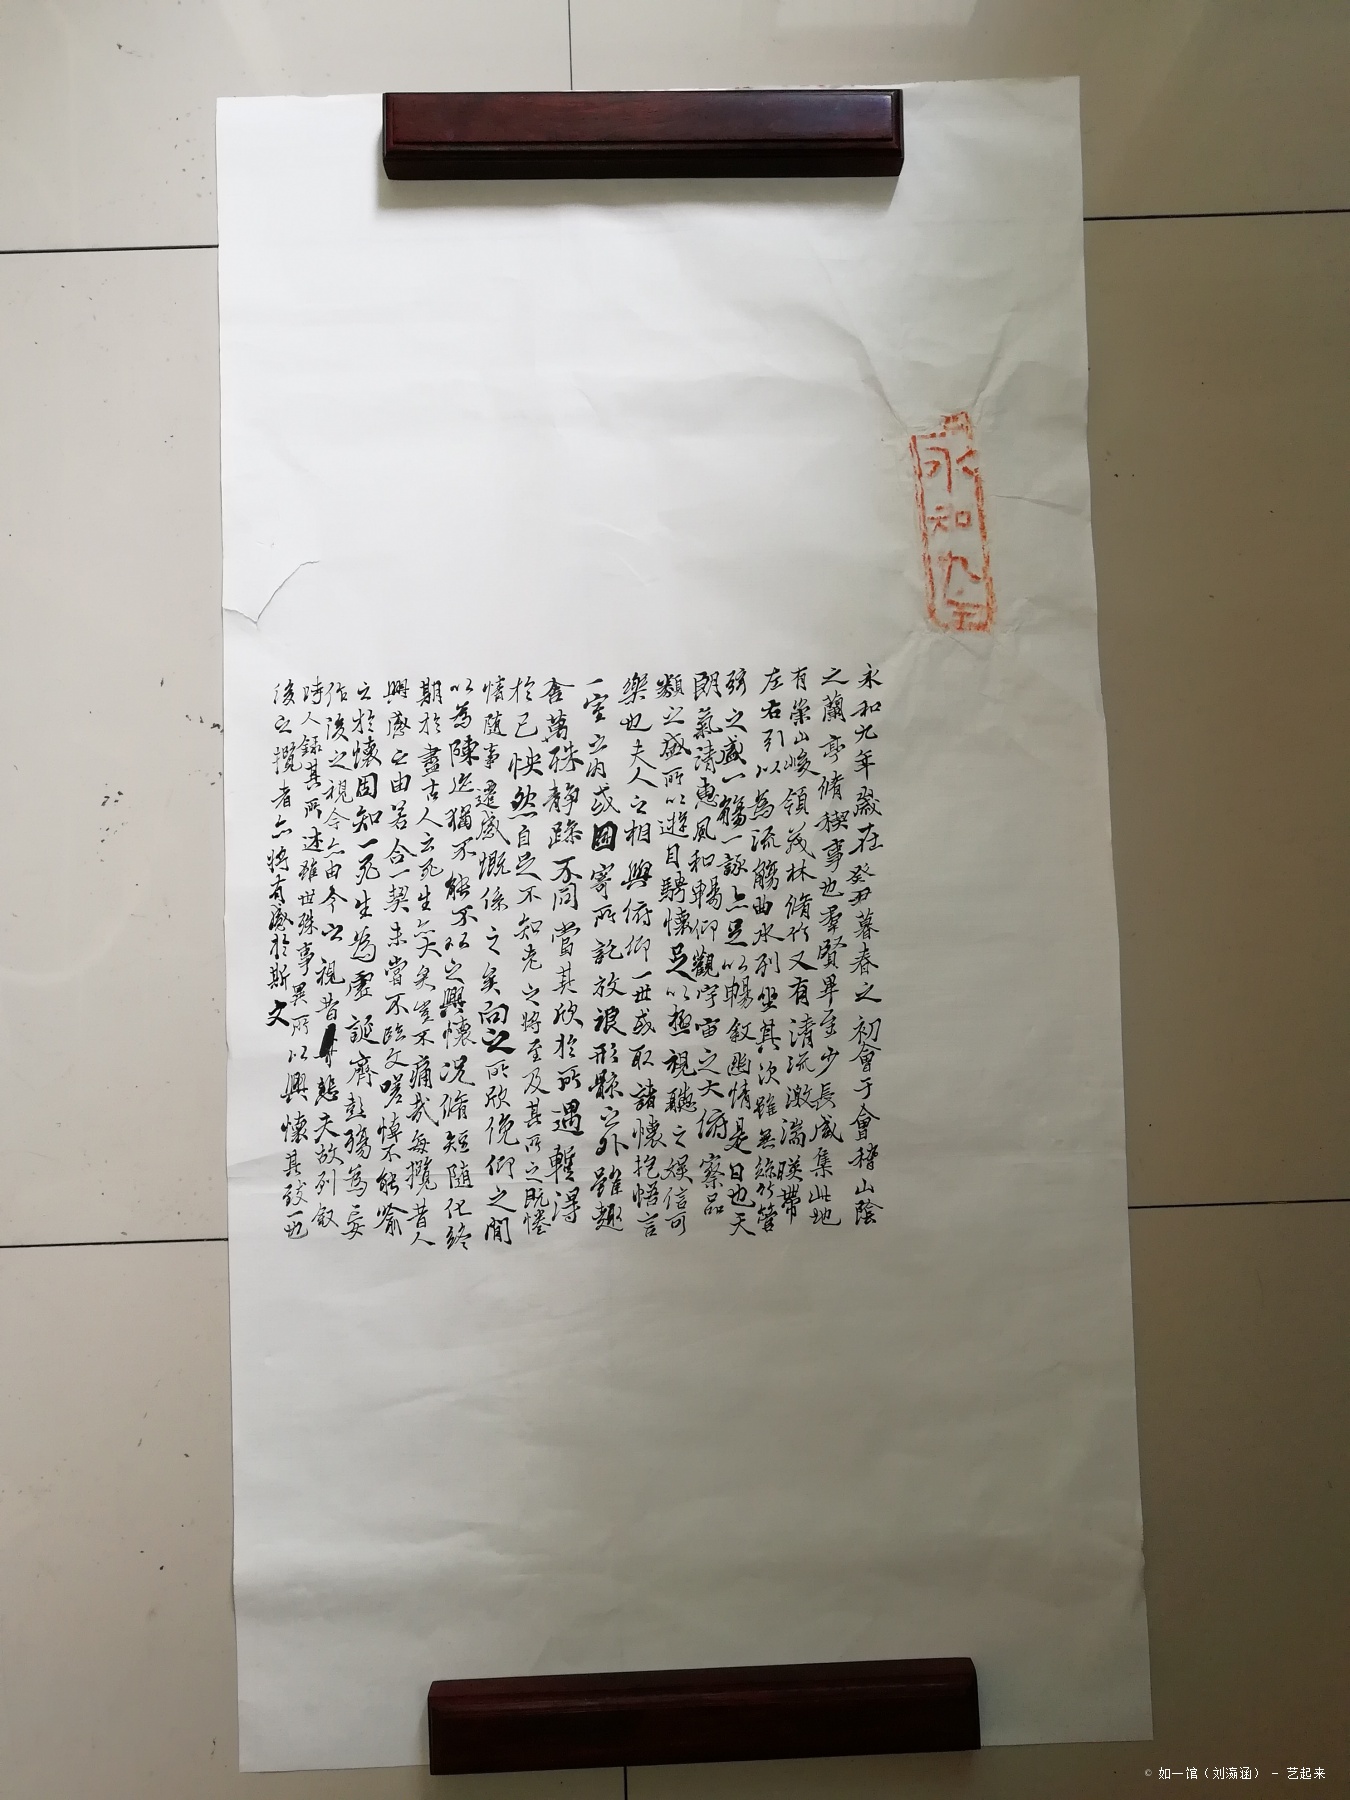 永和九年
永和九年歲在癸丑暮春之初會于會稽山陰
之蘭亭脩稧事也羣賢畢至少長咸集此地
有崇山峻領茂林脩竹又有清流激湍暎帶
左右引以為流觴曲水列坐其次雖無絲竹管
弦之盛一觴一詠亦足以暢敘幽情是日也天
朗氣清惠風和暢仰觀宇宙之大俯察品
類之盛所以遊目騁懷足以極視聽之娛信可
樂也夫人之相與俯仰一世或取諸懷抱悟言
一室之內或因寄所託放浪形骸之外雖趣
舍萬殊靜躁不同當其欣於所遇暫得
於己怏然自足不知老之將至及其所之既惓
情隨事遷感慨係之矣向之所欣俛仰之間
以為陳迹猶不能不以之興懷況脩短隨化終
期於盡古人云死生亦大矣豈不痛哉每攬昔人
興感之由若合一契未嘗不臨文嗟悼不能喻
之於懷固知一死生為虛誕齊彭殤為妄
作後之視今亦由今之視昔悲夫故列敘
時人錄其所述雖世殊事異所以興懷其致一也
後之攬者亦將有感於斯文
© 如一馆（刘瀛涵） - 艺起来